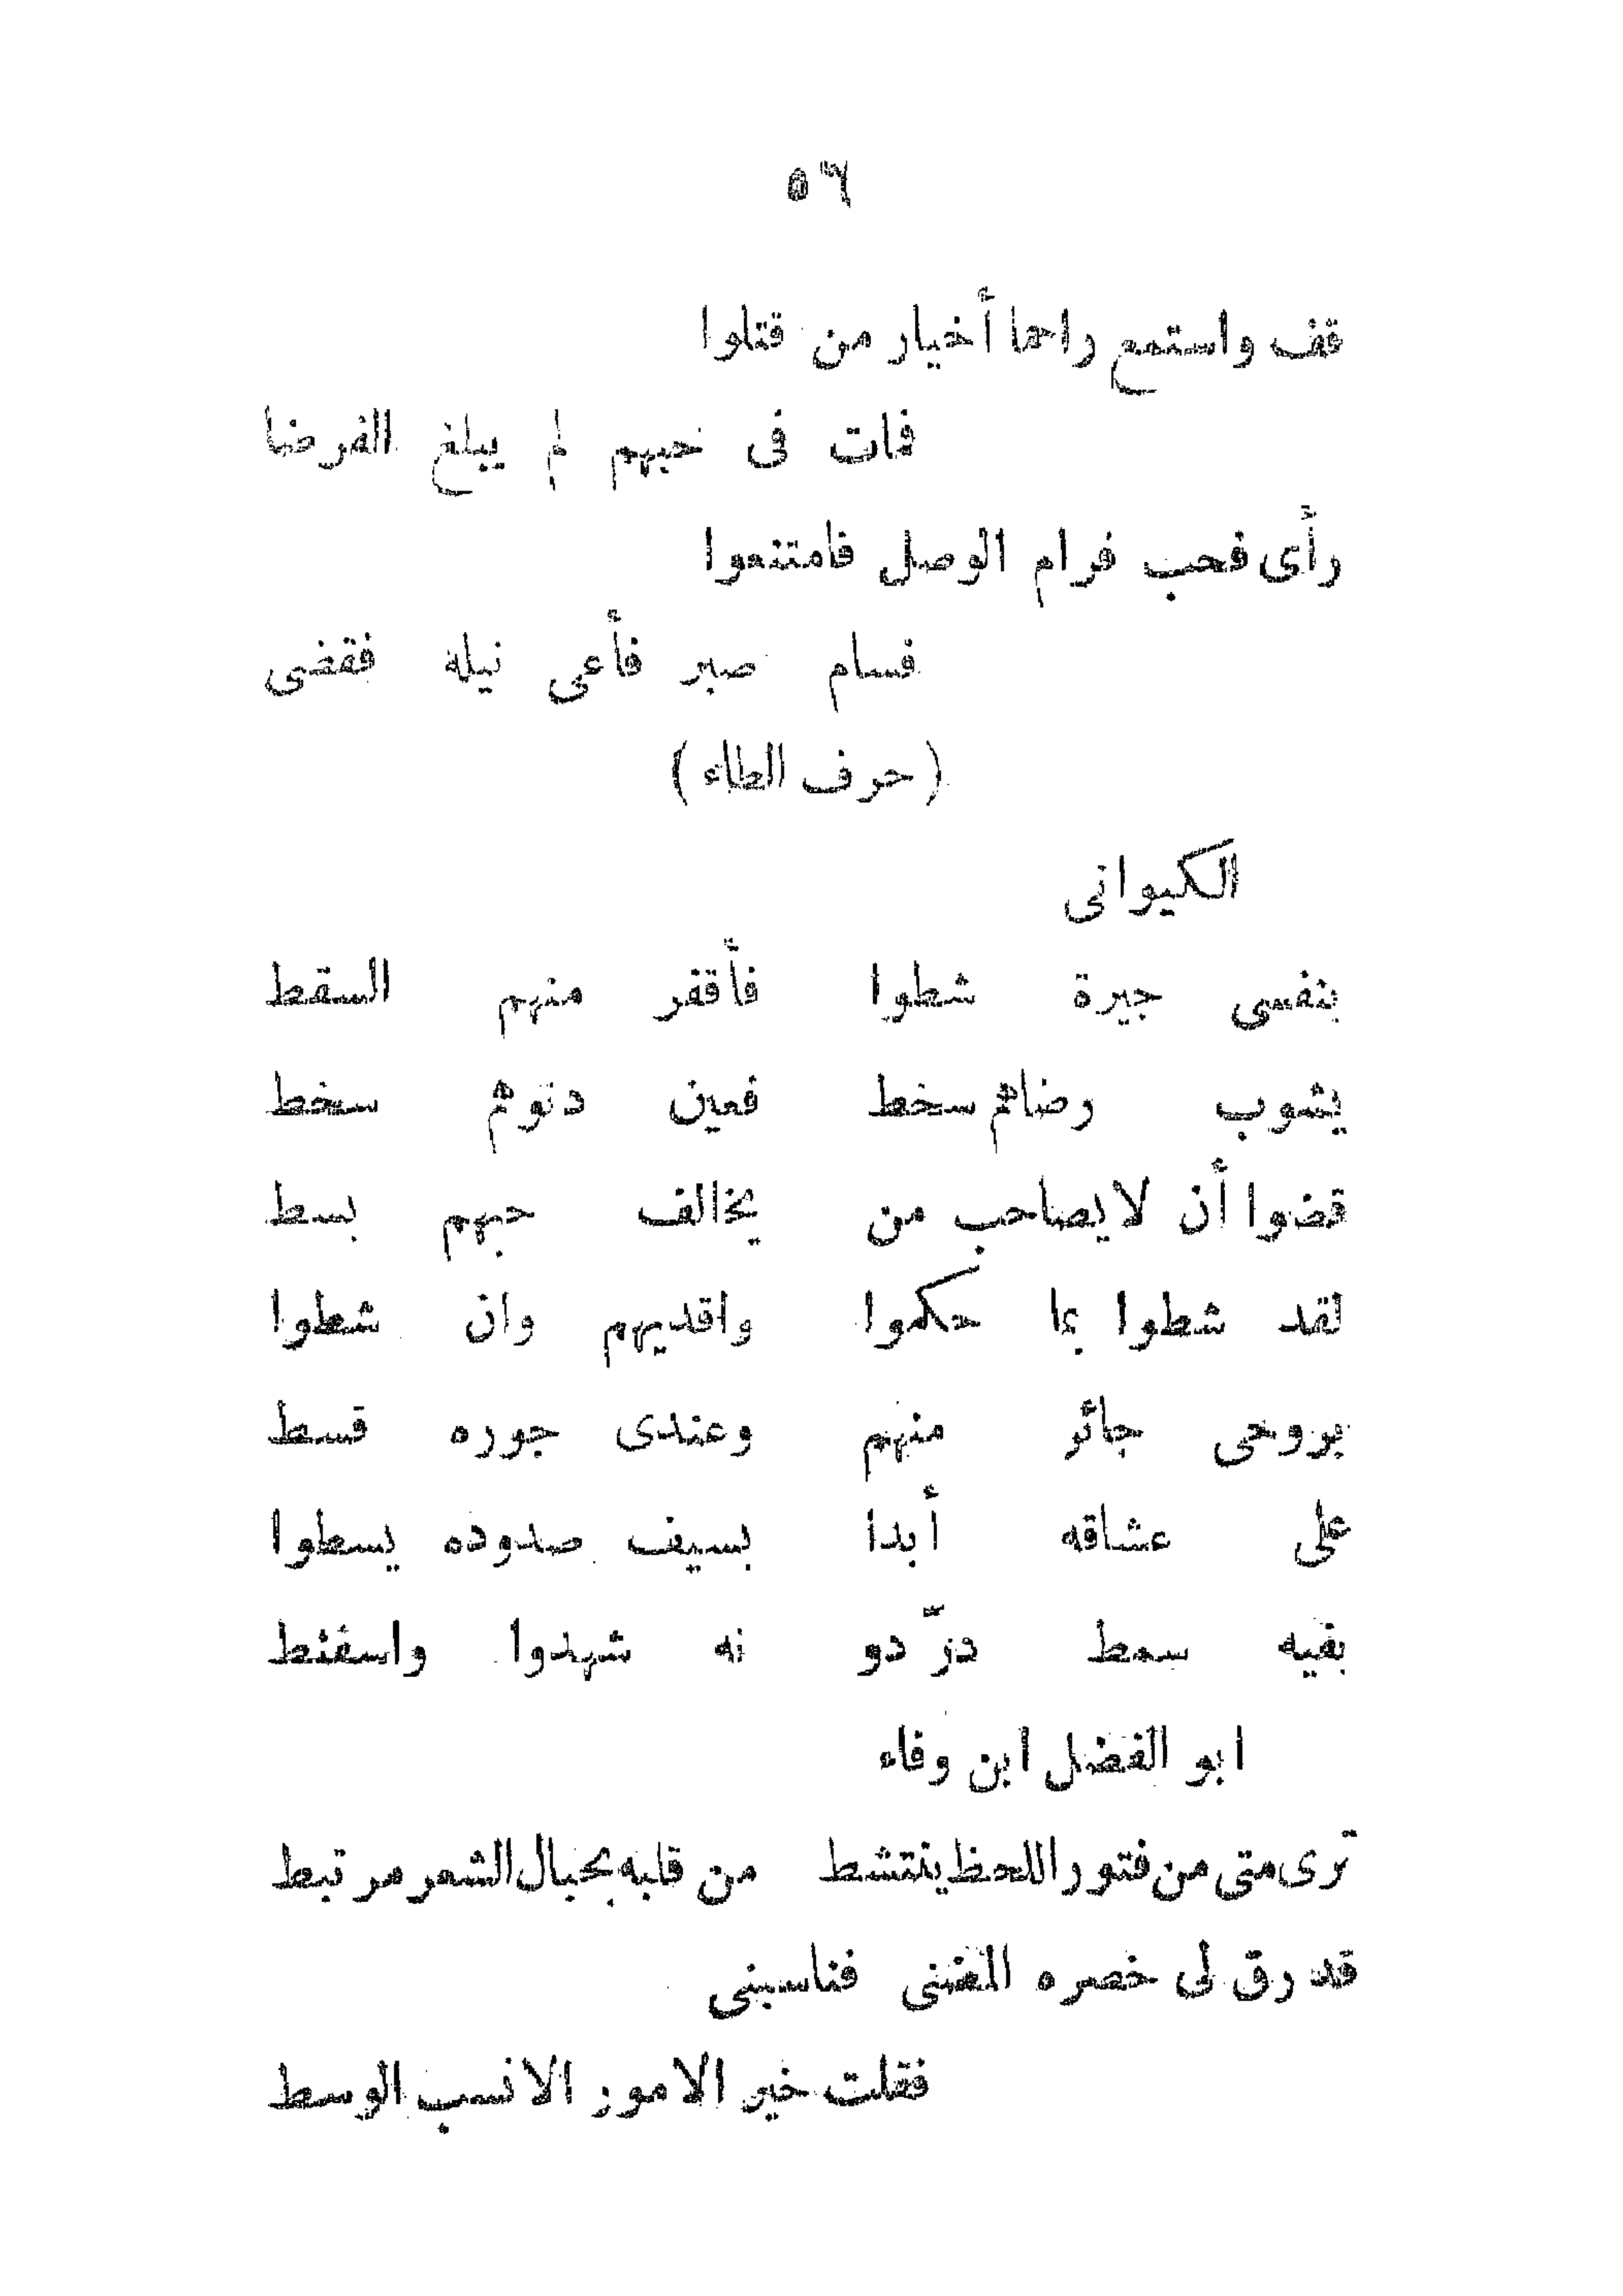 ٥٦
قف واستمع راحما أخبار من قتلوا
فمات فى حبهم لم يبلغ الغرضا
رأى فحب فرام الوصل فامتنعوا
فسام صبر فأعى نيله فقضى
(حرف الطاء)
الكيوانى
بنفسى جيرة شطوا فأقفر منهم السقط
يشوب رضاهم سخط فعين دنوهم سخط
قضوا أن لا يصاحب من يخالف حبهم بسط
لقد شطوا بما حكموا وافديهم وان شطوا
بروحى جائر منهم وعندى جوره قسط
على عشاقه أبدا بسيف صدوده يسطوا
بفيه سمط درّ دو نه شهدوا واسفنط
ابو الفضل ابن وفاء
ترى متى من فتور اللحظ ينتشط من قلبه بحبال الشعر مرتبط
قد رق لى خصره المضنى فناسبنى
فقلت خير الامور الانسب الوسط